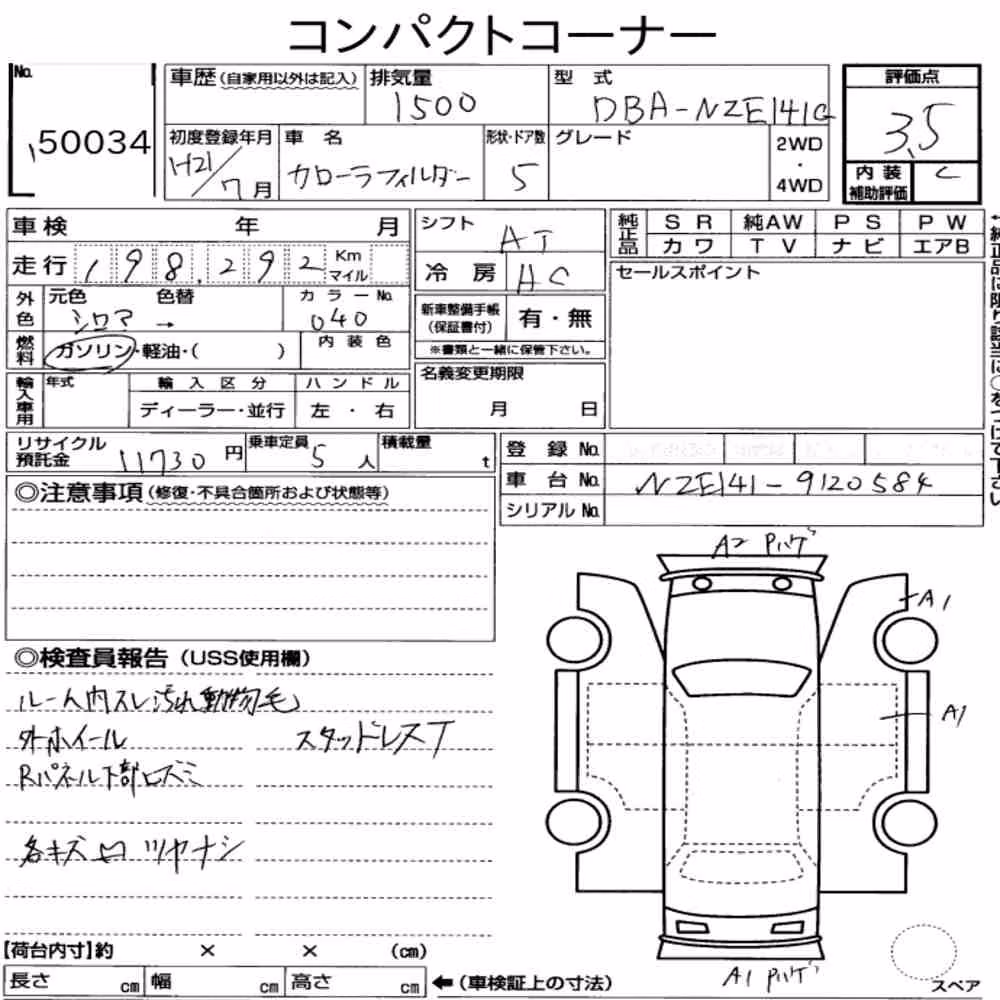 コンパクトコーナー
No. 50034
車歴(自家用以外は記入) 排気量 1500 型式 DBA-NZE141G 評価点 3.5
初度登録年月 H21/7月 車名 カローラフィルダー 形状・ドア数 5 グレード 2WD・4WD
内装補助評価 C
車検 年 月 シフト AT
走行 198,292 Km マイル 冷房 AC
純正品 SR 純AW PS PW
カワ TV ナビ エアB
セールスポイント
外色 元色 色替 カラーNo.
シロマ → 040
新車整備手帳(保証書付) 有・無
※書類と一緒に保管下さい。
燃料 ガソリン・軽油・( ) 内装色
名義変更期限 月 日
輸入車用 年式 輸入区分 ハンドル
ディーラー・並行 左・右
←純正品に限り該当に○をつけて下さい
リサイクル預託金 11730円 乗車定員 5人 積載量 t
登録No.
車台No. NZE141-9120584
シリアルNo.
◎注意事項(修復・不具合箇所および状態等)
A2 Pハゲ
A1
A1
◎検査員報告(USS使用欄)
ルーム内スレ汚れ動物毛
外ホイール スタッドレスT
Rパネル下部ヒズミ
各キズ凹 ツヤナシ
【荷台内寸】約 × × (cm)
長さ cm 幅 cm 高さ cm ←(車検証上の寸法)
A1 Pハゲ
スペア